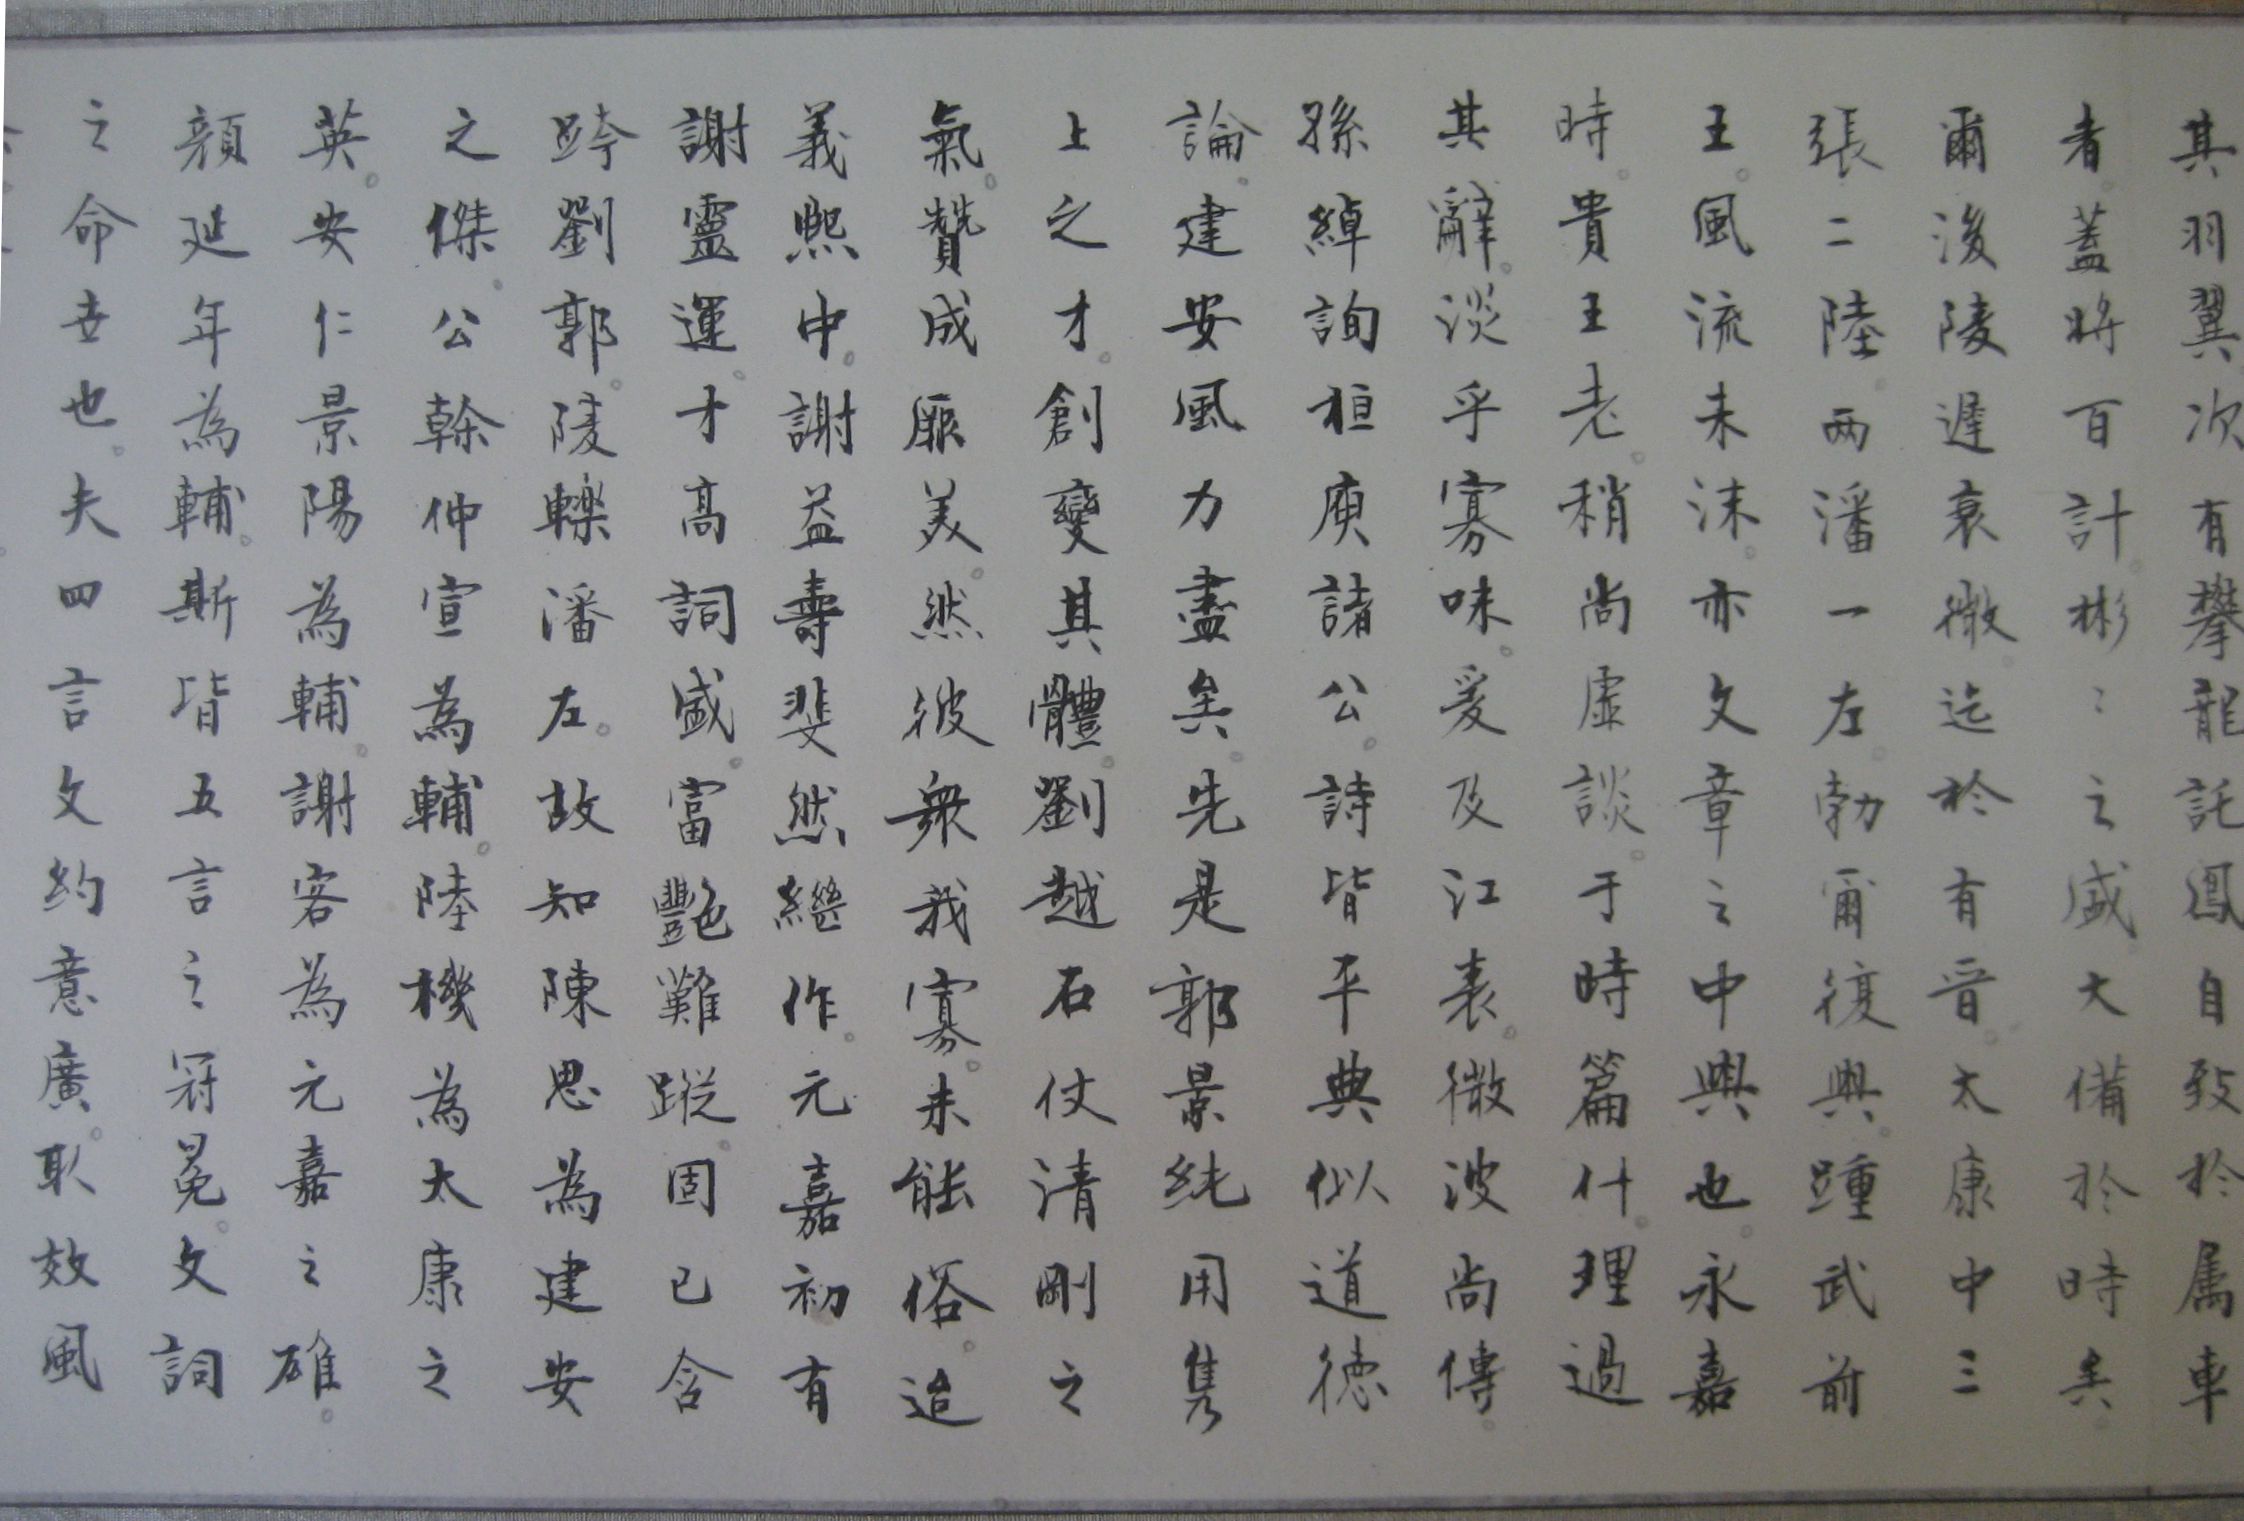 其羽翼次有攀龍託鳳自致於属車
者。蓋將百計。彬〻之盛大備於時矣。
爾後陵遲衰微。迄於有晉。太康中三
張二陸。兩潘一左。勃爾復興。踵武前
王。風流未沬。亦文章之中興也。永嘉
時。貴王老。稍尚虛談。于時篇什。理過
其辭。淡乎寡味。爰及江表。微波尚傳。
孫綽詢桓庾諸公。詩皆平典似道德
論。建安風力盡矣。先是郭景純用雋
上之才。創變其體。劉越石仗清剛之
氣。贊成厥美。然彼衆我寡。未能俗。迨
義熙中。謝益壽斐然繼作。元嘉初有
謝靈運。才高詞盛。富艷難蹤。固已含
跨劉郭。陵轢潘左。故知陳思為建安
之傑。公幹仲宣為輔。陸機為太康之
英。安仁景陽為輔。謝客為元嘉之雄。
顏延年為輔。斯皆五言之冠冕。文詞
之命世也。夫四言文約意廣。取效風